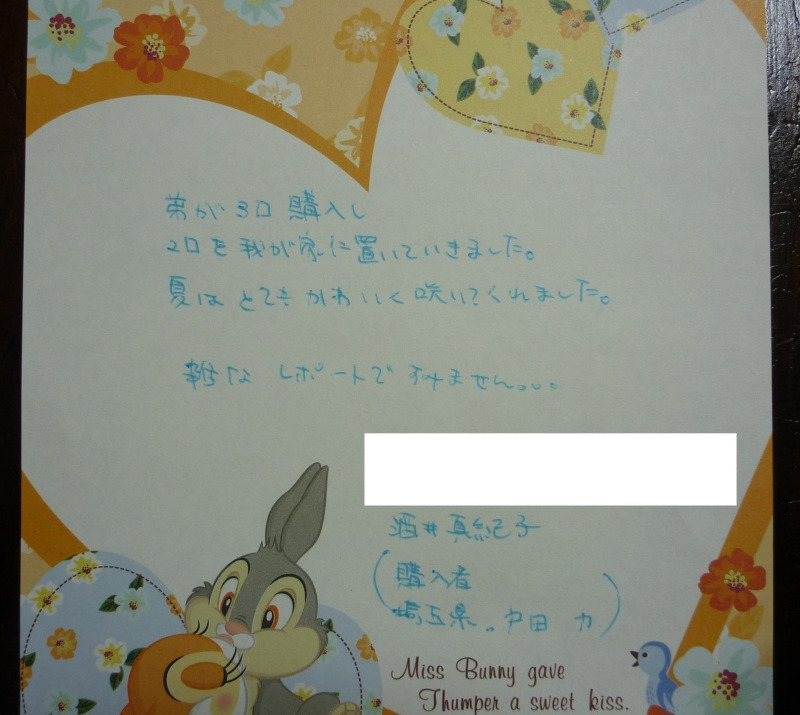 弟が3口購入し
2口を我が家に置いていきました。
夏はとてもかわいく咲いてくれました。
雑な レポートで すみません。。。
酒井真紀子
(購入者
埼玉県。戸田 力)
Miss Bunny gave
Thumper a sweet kiss.